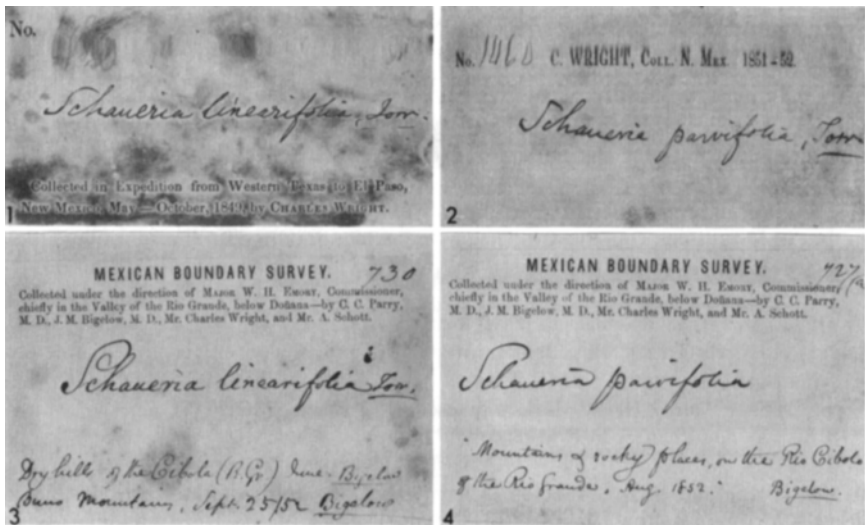 No.
Schaueria linearifolia, Torr.
Collected in Expedition from Western Texas to El Paso,
New Mexico, May—October, 1849, by CHARLES WRIGHT.
1
No. 1460 C. WRIGHT, COLL. N. MEX. 1851-52.
Schaueria parvifolia, Torr
2
MEXICAN BOUNDARY SURVEY. 730
Collected under the direction of MAJOR W. H. EMORY, Commissioner,
chiefly in the Valley of the Rio Grande, below Doñana—by C. C. Parry,
M. D., J. M. Bigelow, M. D., Mr. Charles Wright, and Mr. A. Schott.
Schaueria linearifolia Torr.
Dry hills of the Cibola (R. Gr.) June. Bigelow
Mountains, Sept. 25/52 Bigelow
3
MEXICAN BOUNDARY SURVEY. 727
Collected under the direction of MAJOR W. H. EMORY, Commissioner,
chiefly in the Valley of the Rio Grande, below Doñana—by C. C. Parry,
M. D., J. M. Bigelow, M. D., Mr. Charles Wright, and Mr. A. Schott.
Schaueria parvifolia
Mountains & rocky places, on the Rio Cibolo
of the Rio Grande, Aug. 1852. Bigelow.
4